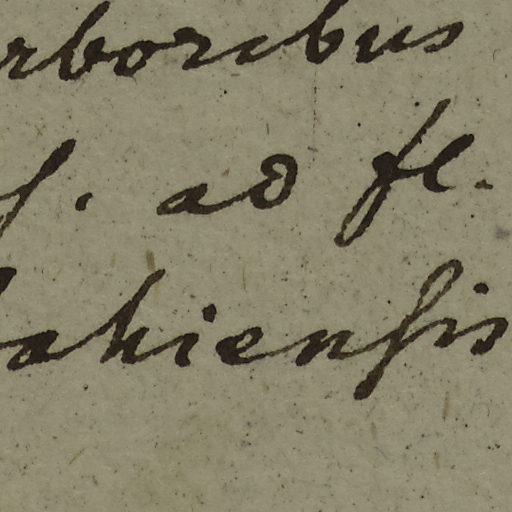 rboribus
f. ad fl.
bahiensis